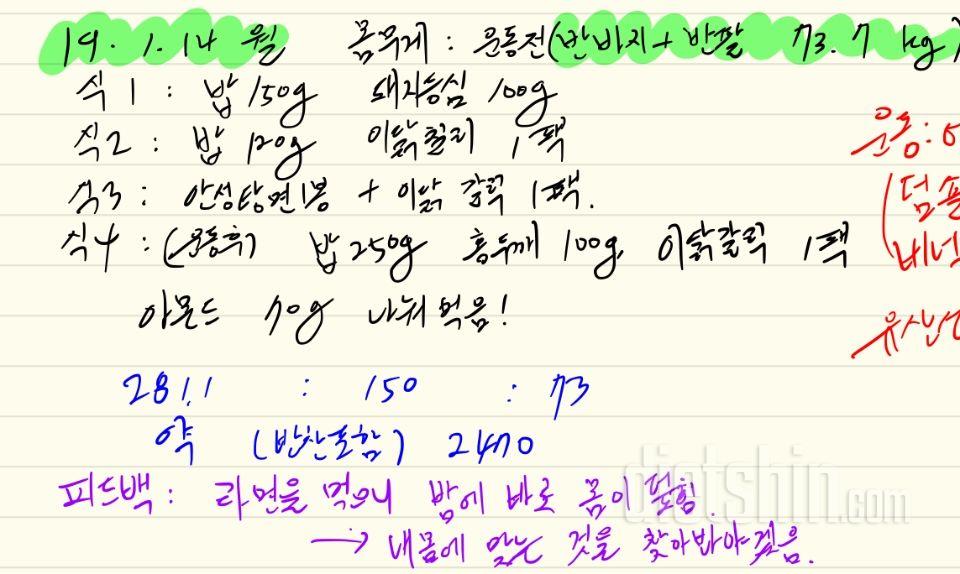 19. 1. 14 월 몸무게 : 운동전(반바지+반팔 73.7 kg)
식1 : 밥 150g 돼지등심 100g
식2 : 밥 120g 이닭칠리 1팩
식3 : 안성탕면1봉 + 이닭 갈릭 1팩.
식4 : (운동후) 밥 250g 홍두깨 100g, 이닭갈릭 1팩
아몬드 70g 나눠먹음!
281.1 : 150 : 73
약 (반찬포함) 2470
피드백 : 라면을 먹으니 밤에 바로 몸이
→ 내몸에 맞는 것을 찾아봐야겠음.
운동:
(덤
유산
dietshin.com